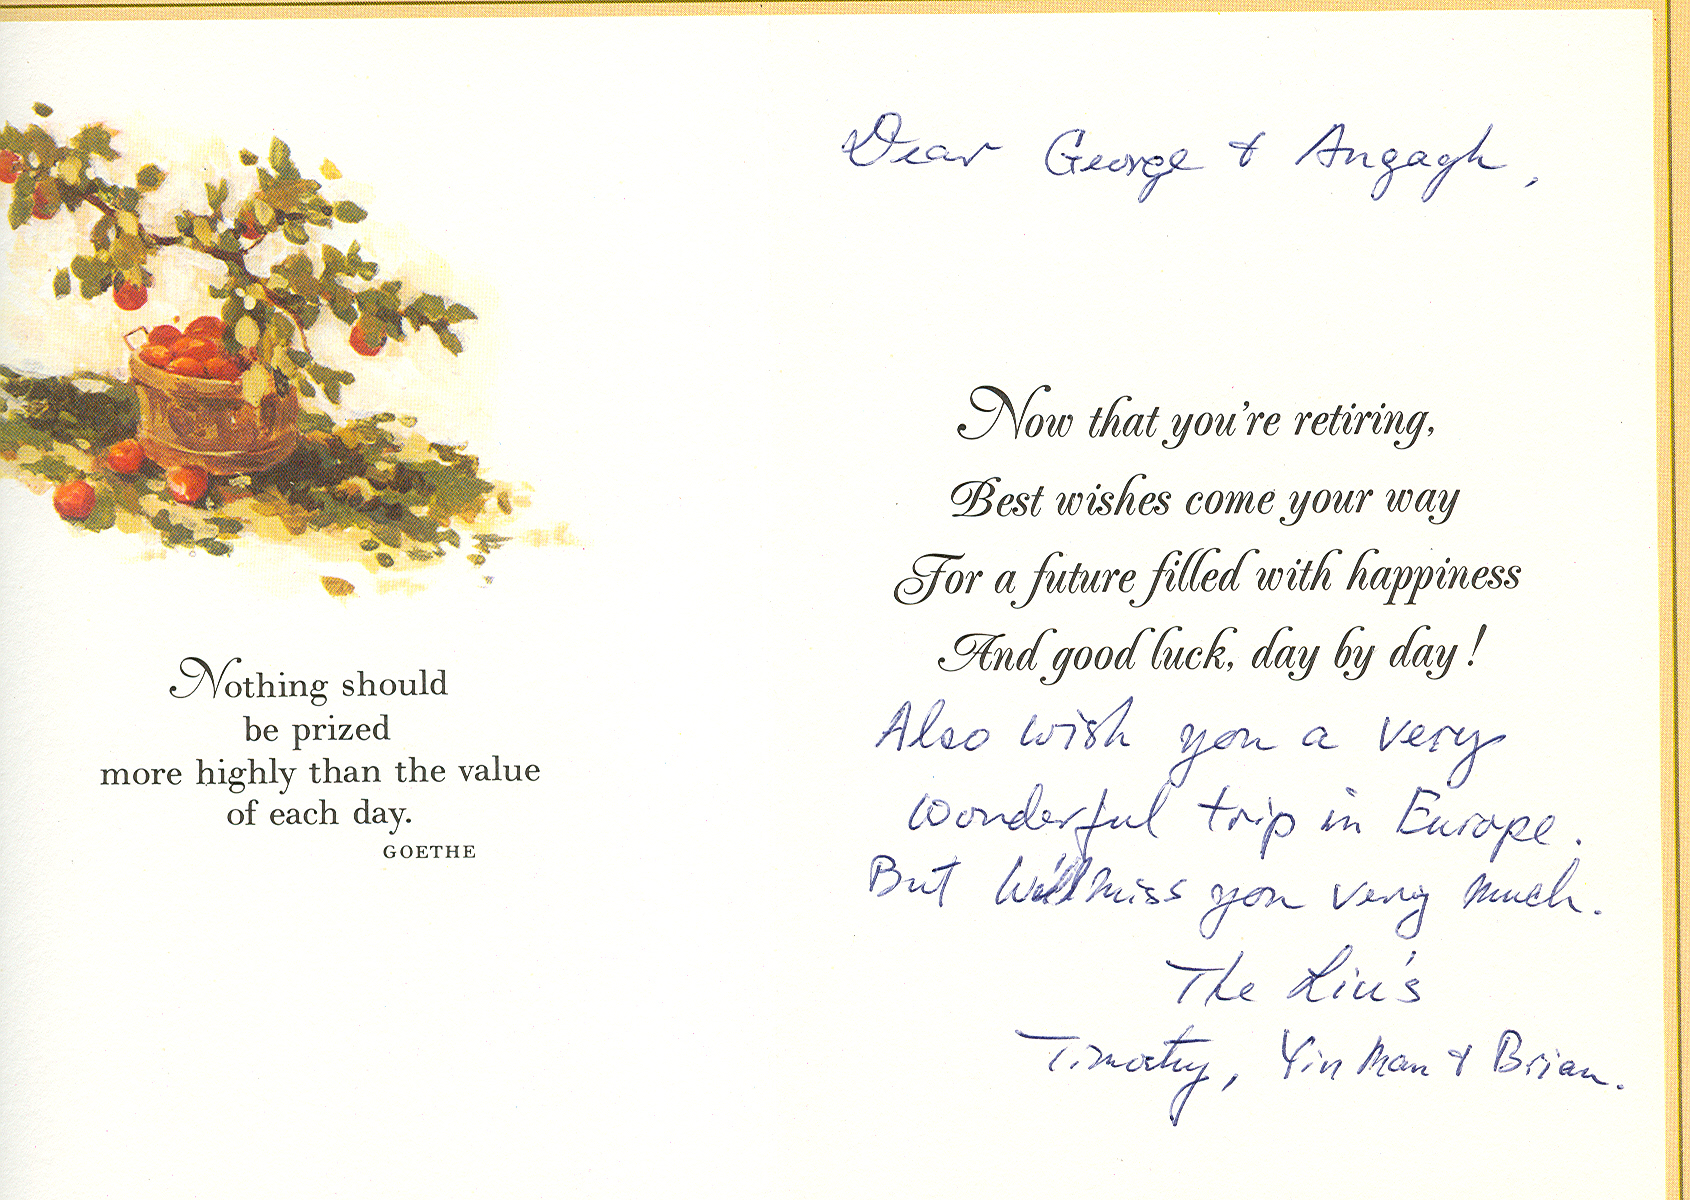 Nothing should
be prized
more highly than the value
of each day.
GOETHE
Dear George & Angagh,
Now that you're retiring,
Best wishes come your way
For a future filled with happiness
And good luck, day by day!
Also wish you a very
wonderful trip in Europe.
But will miss you very much.
The Liu's
Timothy, Yin Man & Brian.